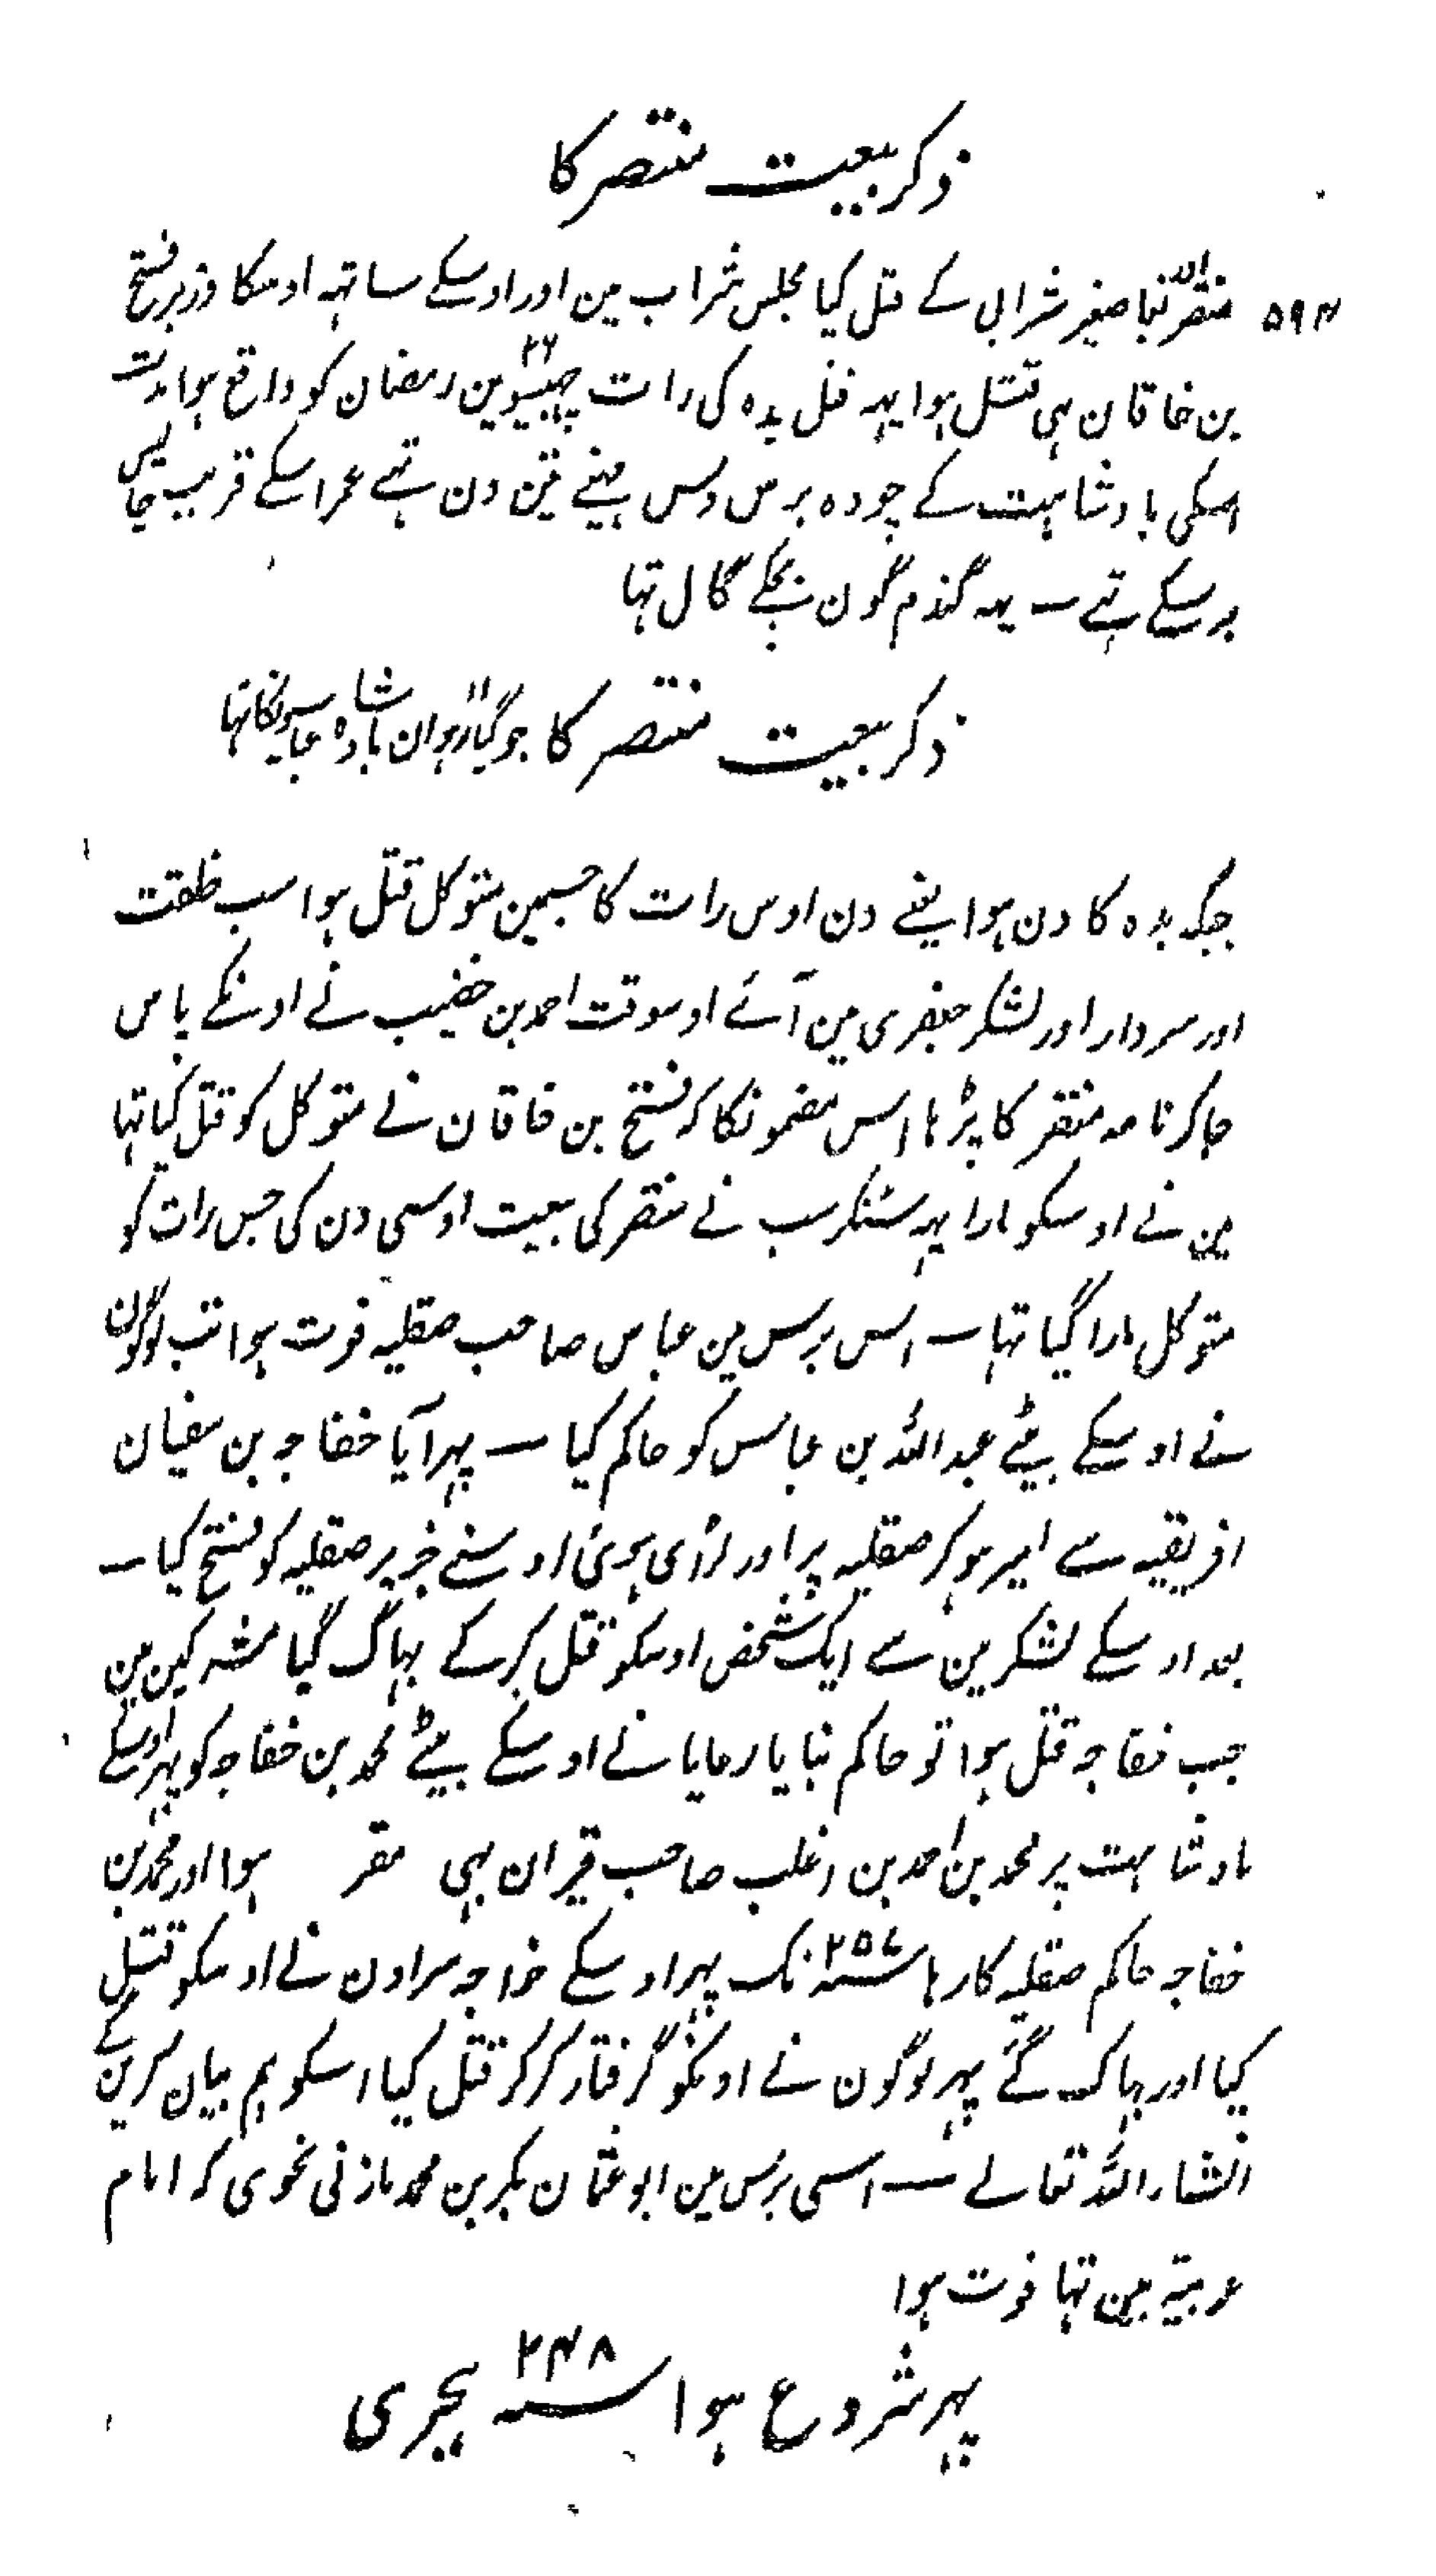 ذکر بیعت منتصر کا
۵۹۴
منتصر اللہ بغا صغیر شرابی کے قتل کیا مجلس شراب مین اور اوسکے ساتہہ اوسکا وزیر فتح
بن خاقان بہی قتل ہوا یہہ قتل بدہ کی رات چہبیسوین ۲۶ رمضان کو واقع ہوا مدت
اسکی بادشاہت کے چودہ برس دس مہینے تین دن تہے عمر اسکے قریب چالیس
برسکے تہے ــ یہہ گندم گون پچکے گال تہا
ذکر بیعت منتصر کا جو گیارہوان ۱۱ بادشاہ عباسیونکا تہا
جبکہ بدہ کا دن ہوا یعنے دن اوس رات کا جسمین متوکل قتل ہوا سب خلقت
اور سردار اور لشکر جعفری مین آئے اوسوقت احمد بن خضیب نے اونکے پاس
جاکر نامہ منتصر کا پڑہا اس مضمونکا کہ فتح بن خاقان نے متوکل کو قتل کیا تہا
مین نے اوسکو مارا یہہ سنکر سب نے منتصر کی بیعت اوسی دن کی جس رات کو
متوکل مارا گیا تہا ــ اس برس مین عباس صاحب صقلیہ فوت ہوا تب لوگون
نے اوسکے بیٹے عبد اللہ بن عباس کو حاکم کیا ــ پہر آیا خفاجہ بن سفیان
افریقیہ سے امیر ہو کر صقلیہ پر اور لڑائی ہوئی اوسنے جزیر صقلیہ کو فتح کیا ــ
بعد اوسکے لشکر مین سے ایک شخص اوسکو قتل کرکے بہاگ گیا مشرکین مین
جب خفاجہ قتل ہوا تو حاکم بنایا رعایا نے اوسکے بیٹے محمد بن خفاجہ کو پہر اوسکے
بادشاہت پر محمد بن احمد بن اغلب صاحب قیران بہی مقر ہوا اور محمد بن
خفاجہ حاکم صقلیہ کا رہا سنہ ۲۵۷ تک پہر اوسکے خواجہ سراون نے اوسکو قتل
کیا اور بہاگ گئے پہر لوگون نے اونکو گرفتار کرکر قتل کیا اسکو ہم بیان کرین گے
انشاء اللہ تعالے ــ اسی برس مین ابو عثمان بکر بن محمد مازنی نحوی کہ امام
عربیۃ مین تہا فوت ہوا
پہر شروع ہوا سنہ ۲۴۸ ہجری